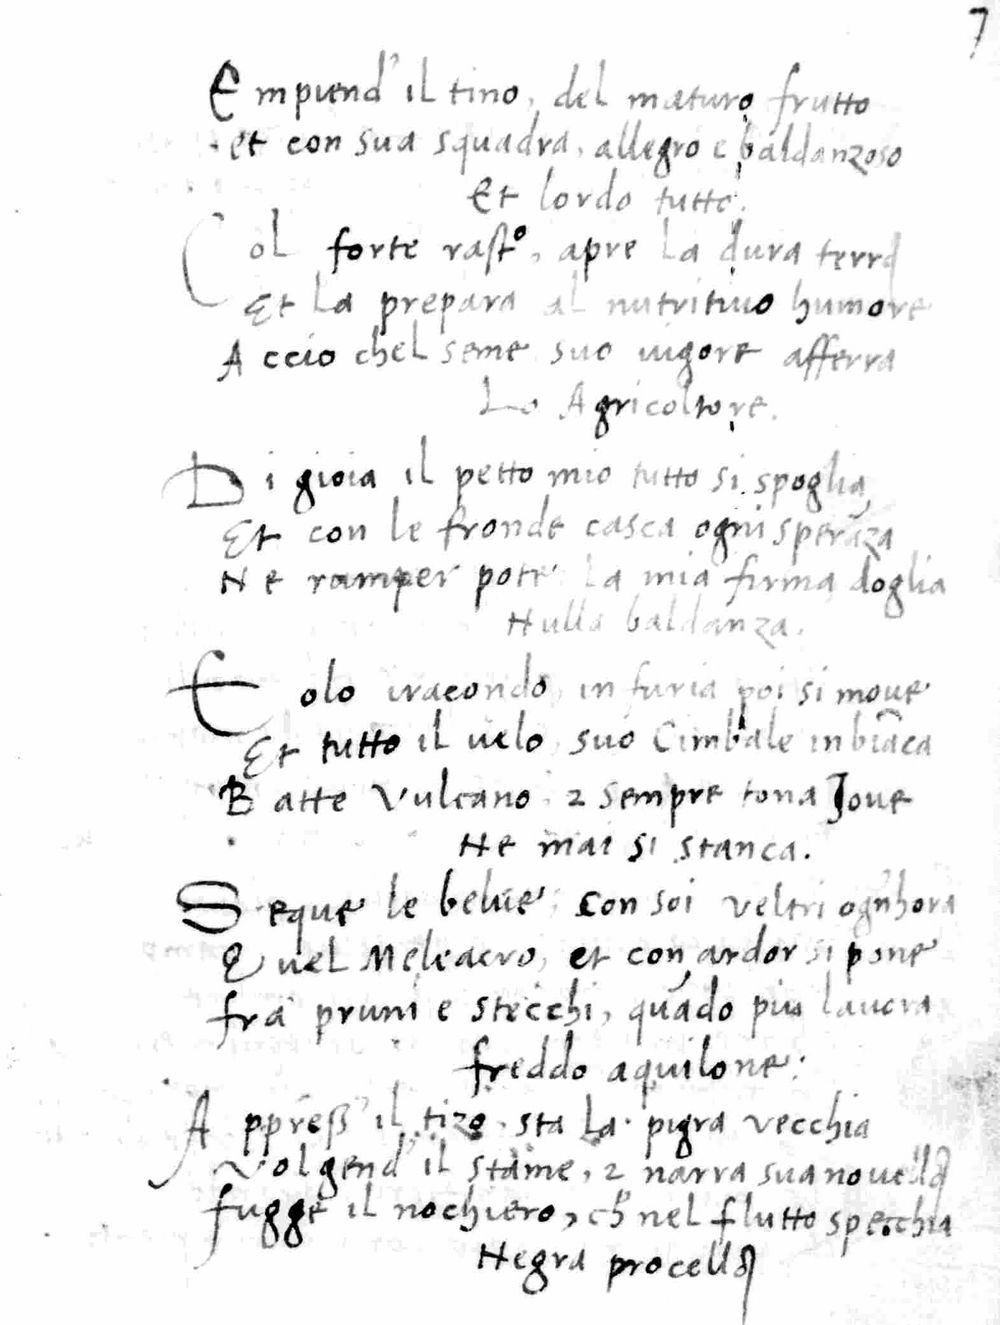 7
Empiend' il tino, del maturo frutto
et con sua squadra, allegro e baldanzoso
Et lordo tutto.
Col forte rasto, apre la dura terra
Et la prepara al nutritiuo humore
Accio chel seme suo uigore afferra
Lo Agricoltore.
Di gioia il petto mio tutto si spoglia,
Et con le fronde casca ogni sperāza
Ne romper pote la mia firma doglia
Nulla baldanza.
Eolo iracondo, in furia poi si moue
Et tutto il uelo, suo Cimbale inbiāca
Batte Vulcano, 2 sempre tona Joue
Ne mai si stanca.
Seque le belue, con soi veltri ogn'hora
Quel Meleacro, et con ardor si pone
fra pruni e stecchi, quādo piu lauora
freddo aquilone:
Appreß' il tizo, sta la pigra vecchia
Volgend' il stame, 2 narra sua nouella
fugge il nochiero, ch' nel flutto specchia
Negra procella